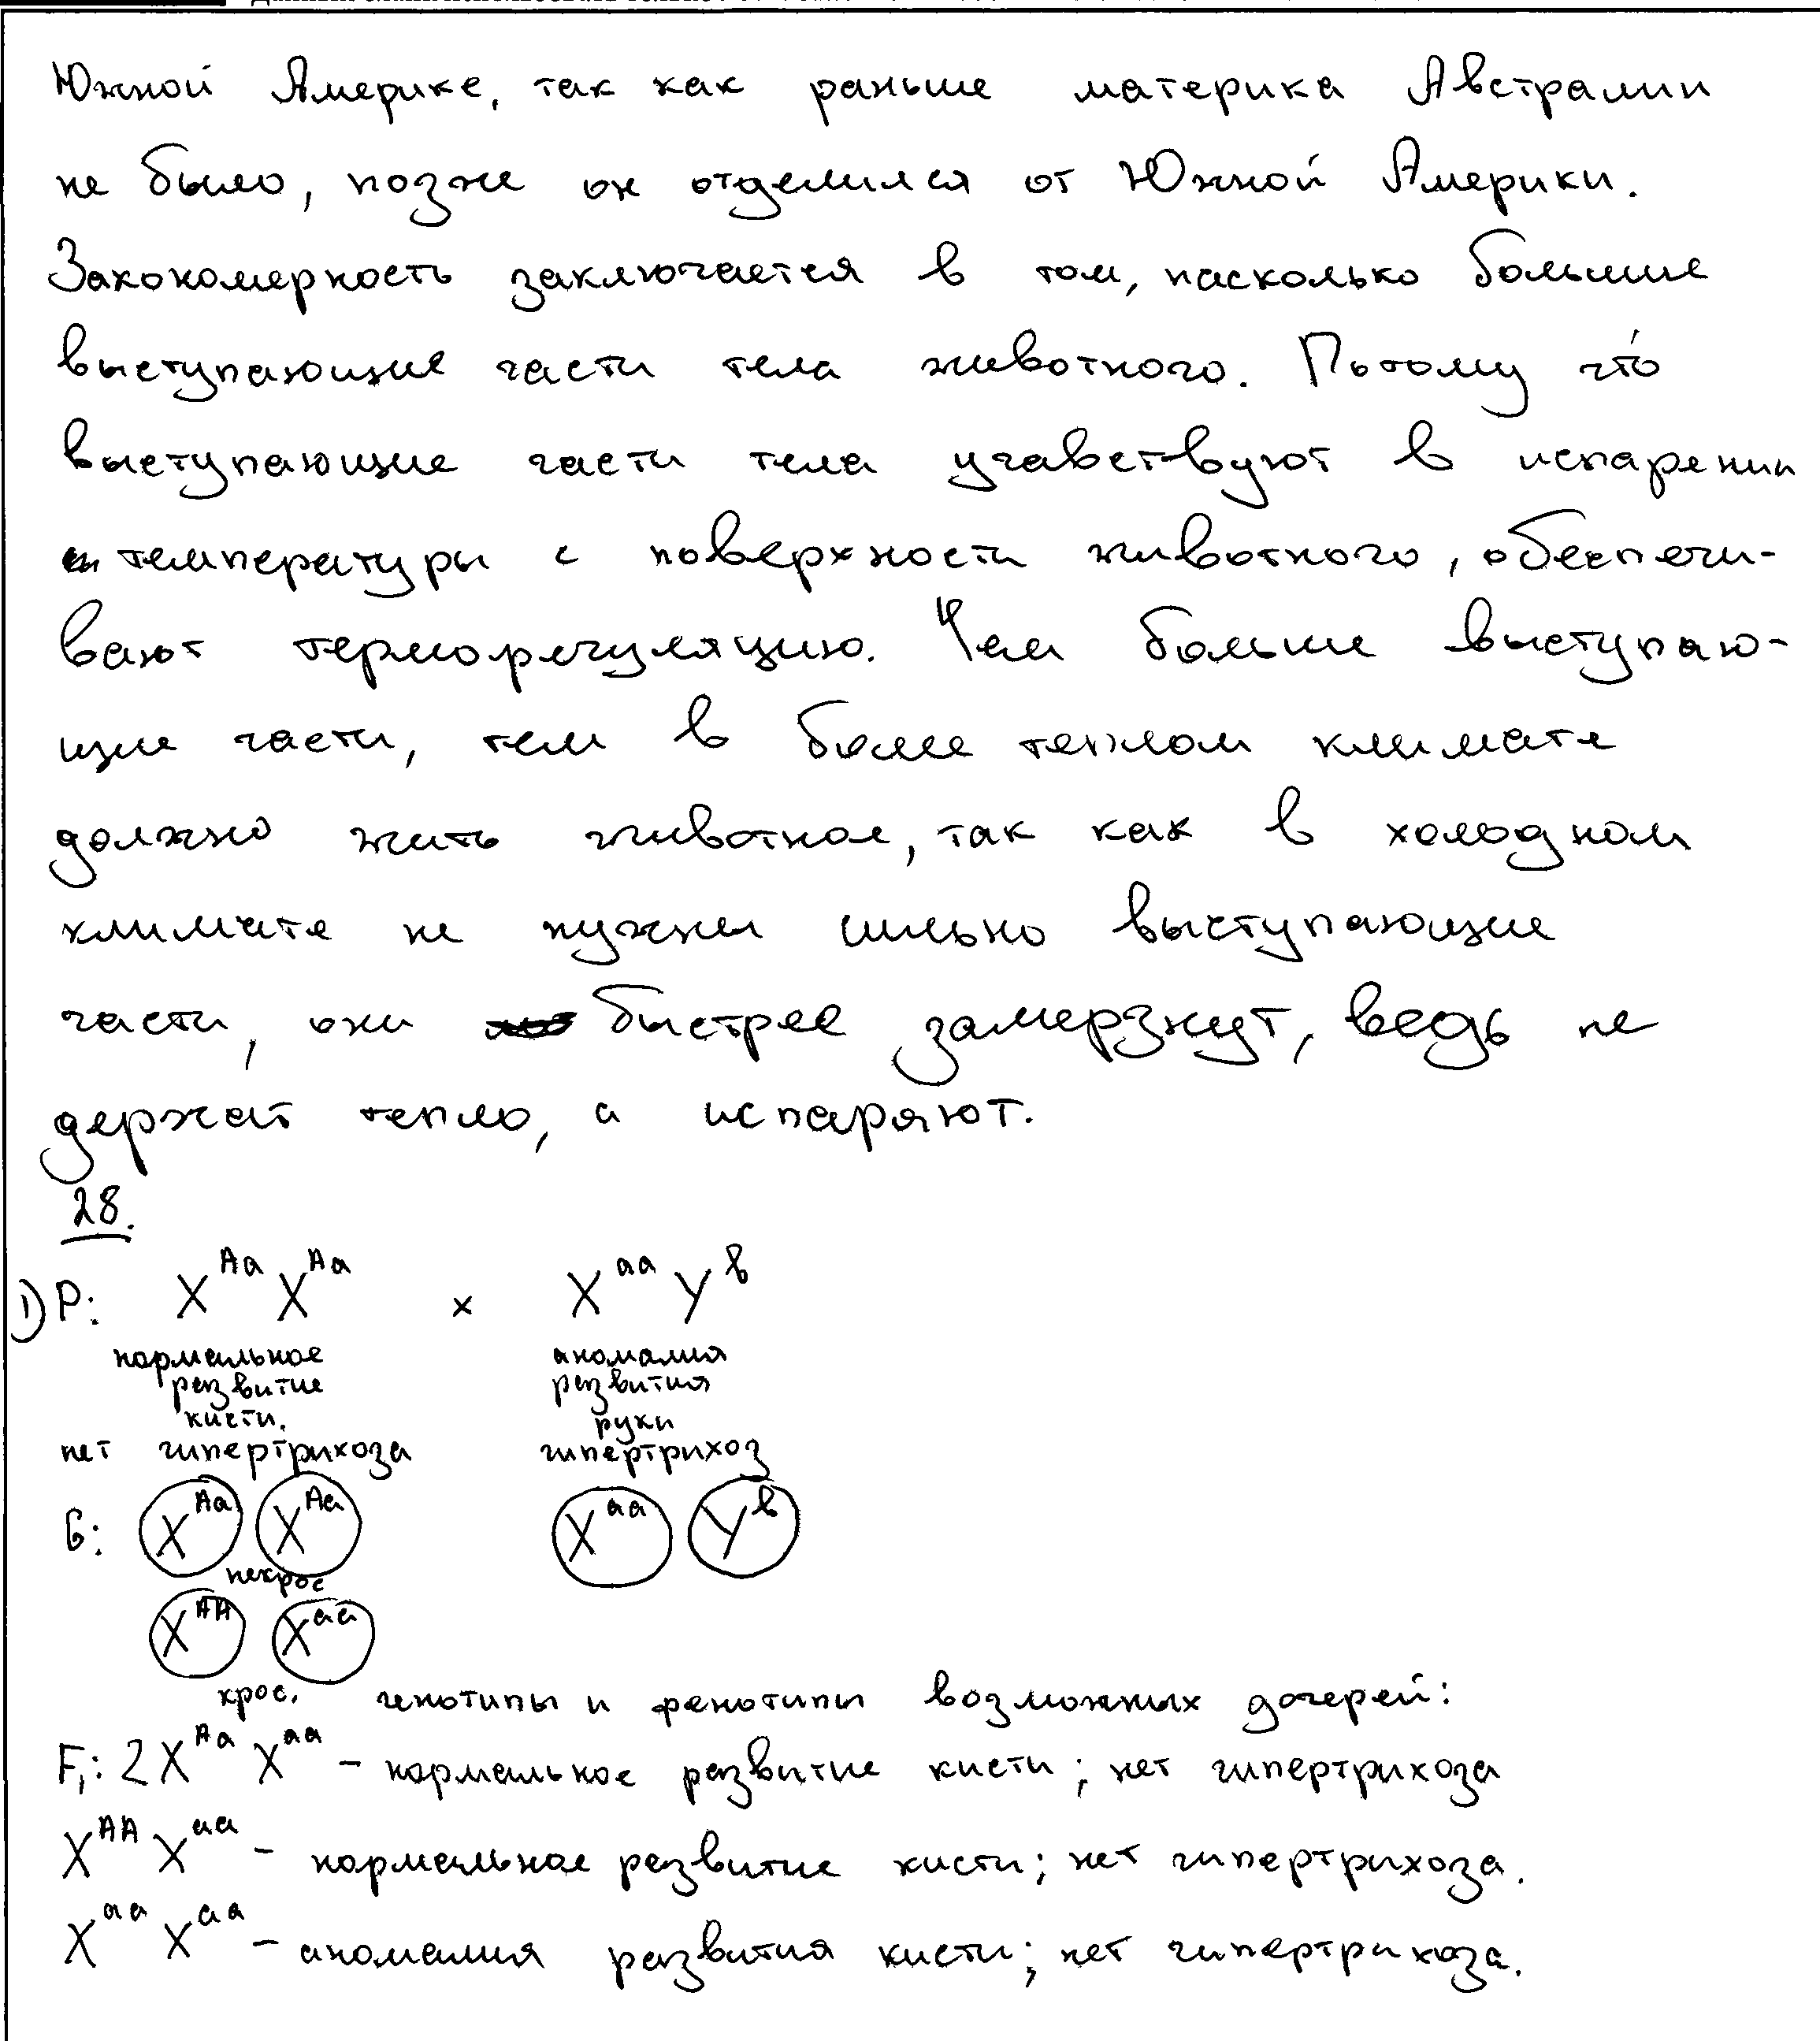 Южной Америке, так как раньше материка Австралии
не было, позже он отделился от Южной Америки.
Закономерность заключается в том, насколько большие
выступающие части тела животного. Потому что
выступающие части тела учавствуют в испарении
температуры с поверхности животного, обеспечи-
вают терморегуляцию. Чем больше выступаю-
щие части, тем в более теплом климате
должно жить животное, так как в холодном
климате не нужны сильно выступающие
части, они быстрее замерзнут, ведь не
держат тепло, а испаряют.
28.
1) P: X^Aa X^Aa x X^aa Y^b
нормальное аномалия
развитие развития
кисти. руки
нет гипертрихоза гипертрихоз
G: X^Aa X^Aa X^aa Y^b
некрос
X^AA X^aa
крос. генотипы и фенотипы возможных дочерей:
F1: 2X^Aa X^aa – нормальное развитие кисти; нет гипертрихоза
X^AA X^aa – нормальное развитие кисти; нет гипертрихоза.
X^aa X^aa – аномалия развития кисти; нет гипертрихоза.